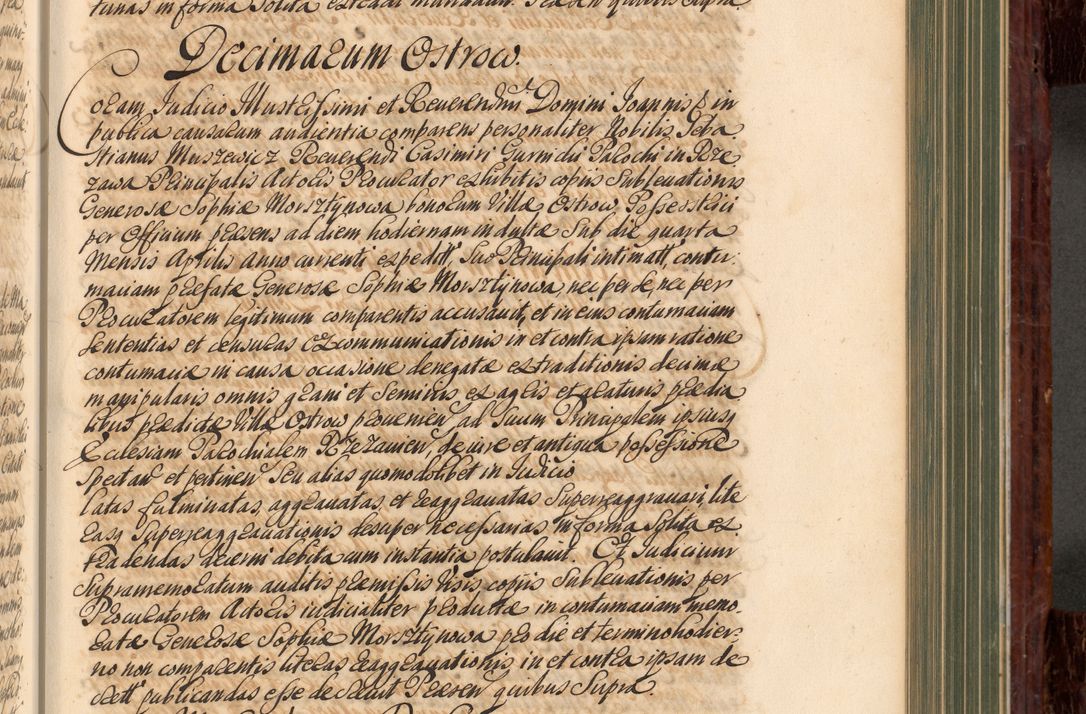 tunas in forma solita extradi mandavit. Præsen quibus supra.
Decimarum Ostrow.
Coram Judicio Illustrissimi et Reverendissi Domini Joannis in
publica causarum audientia comparens personaliter Nobilis Seba
stianus Muszewicz Reverendi Casimiri Gurnicki Parochi in Rze
zawa Principalis Actoris Procurator exhibitis copiis Sublevationis
Generosæ Sophiæ Morsztynowa bonorum Villæ Ostrow Possesstrici
per Officium præsens ad diem hodiernam indultæ Sub die quarta
Mensis Aprilis Anno currenti expedit, suo Principali intimatt, contu:
maciam præfatæ Generosæ Sophiæ Morsztynowa, nec per se, nec per
Procuratorem legitimum comparentis accusavit, et in eius contumaciam
Sententias et censuras excommunicationis in et contra ipsam ratione
contumaciæ in causa occasione denegatæ extraditionis decimæ
manipularis omnis grani et seminis, ex agris et araturis prædia
libus prædictæ Villæ Ostrow provenien, ad Suum Principalem ipsiusq
Ecclesiam Parochialem Rzezavien, de iure et antiqua possessione
spectan et pertinen seu alias quomodolibet in Judicio
latas fulminatas, aggravatas, et reaggravatas superreaggravari, lite
rasq superreaggravationis desuper necessarias in forma solita ex
tradendas decerni debita cum instantia postulavit. Et Judicium
supramemoratum auditis præmissis visis copiis Sublevationis per
Procuratorem Actoris iudicialiter productæ in contumaciam memo:
ratæ Generosæ Sophiæ Morsztynowa pro die et termino hodier:
no non comparentis literas reaggravationis, in et contra ipsam de
crett publicandas esse decrevit Præsen quibus Supra.